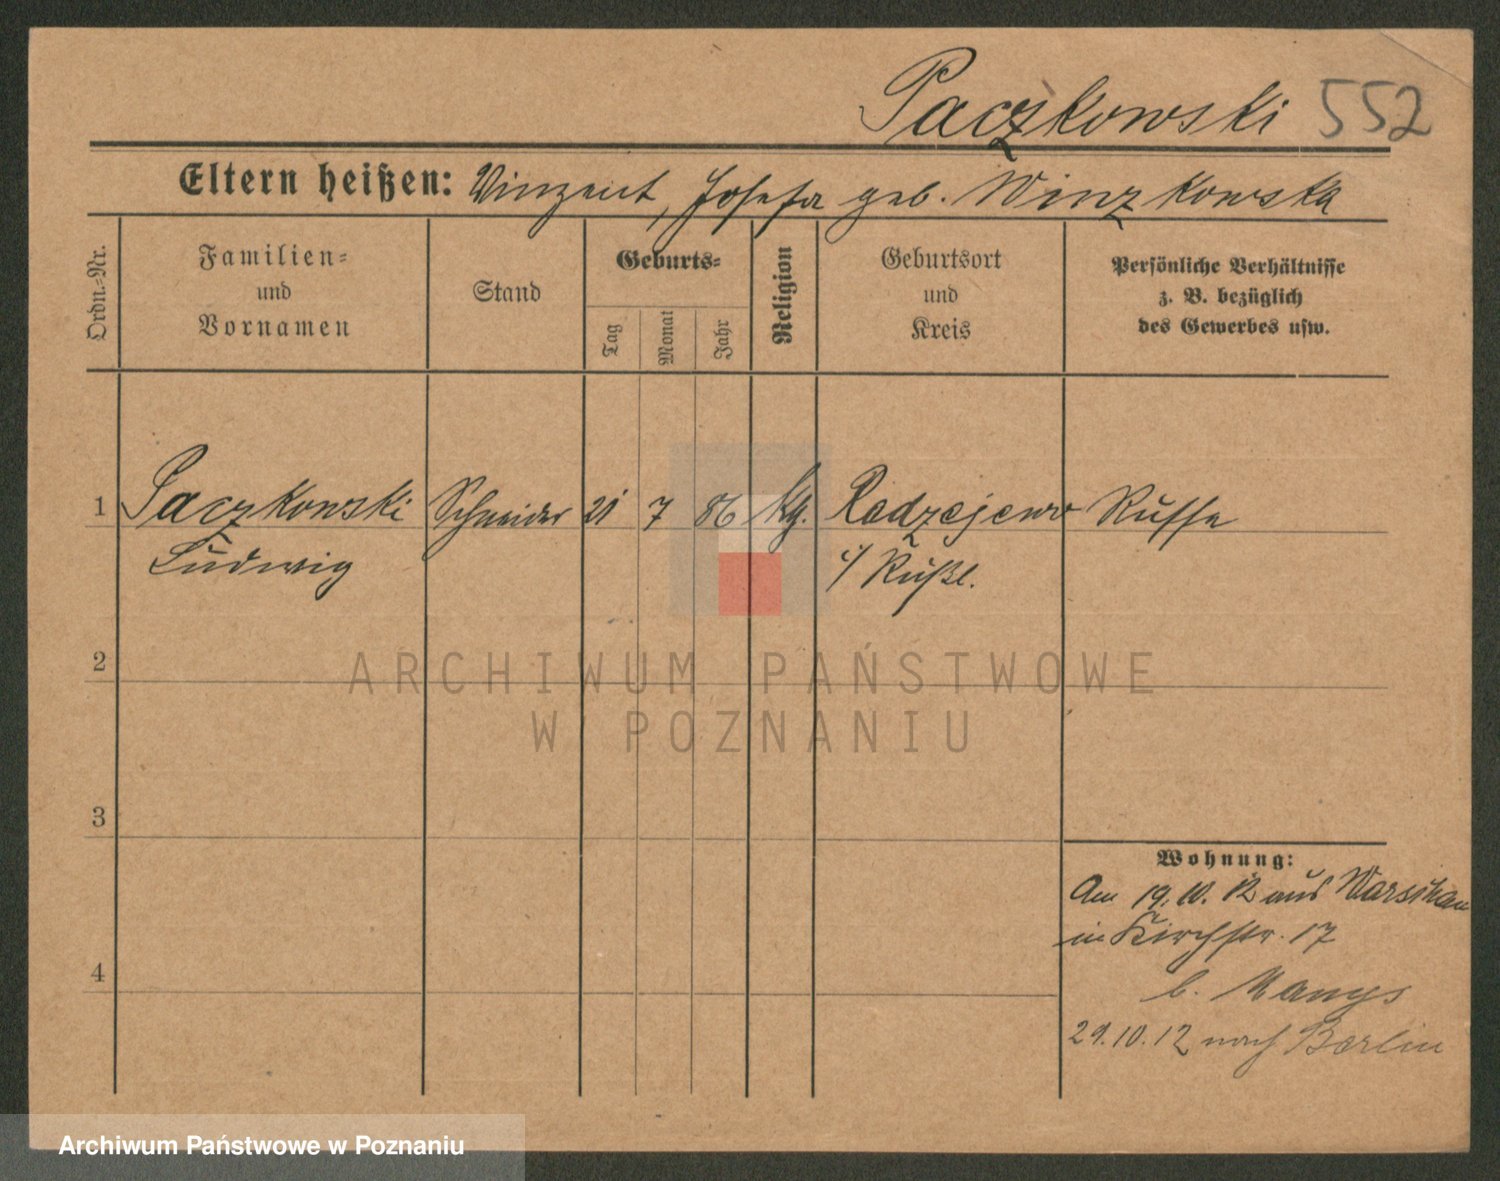 Paczkowski 552
Eltern heißen: Vinzent, Josefa geb. Winzkowska
Ordn.-Nr.
Familien-
und
Vornamen
Stand
Geburts-
Tag
Monat
Jahr
Religion
Geburtsort
und
Kreis
Persönliche Verhältnisse
z. B. bezüglich
des Gewerbes usw.
1 Paczkowski Schneider 21 7 86 kg. Radzejewo Russe
Ludwig i/ Rußl.
2
ARCHIWUM PAŃSTWOWE
W POZNANIU
3
Wohnung:
Am 19.10.12 aus Warschau
in Kirchstr. 17
4
b. Manys
29.10.12 nach Berlin
Archiwum Państwowe w Poznaniu